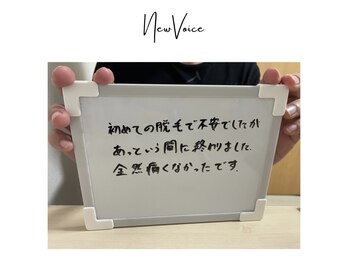 New Voice
初めての脱毛で不安でしたが
あっという間に終わりました.
全然痛くなかったです.